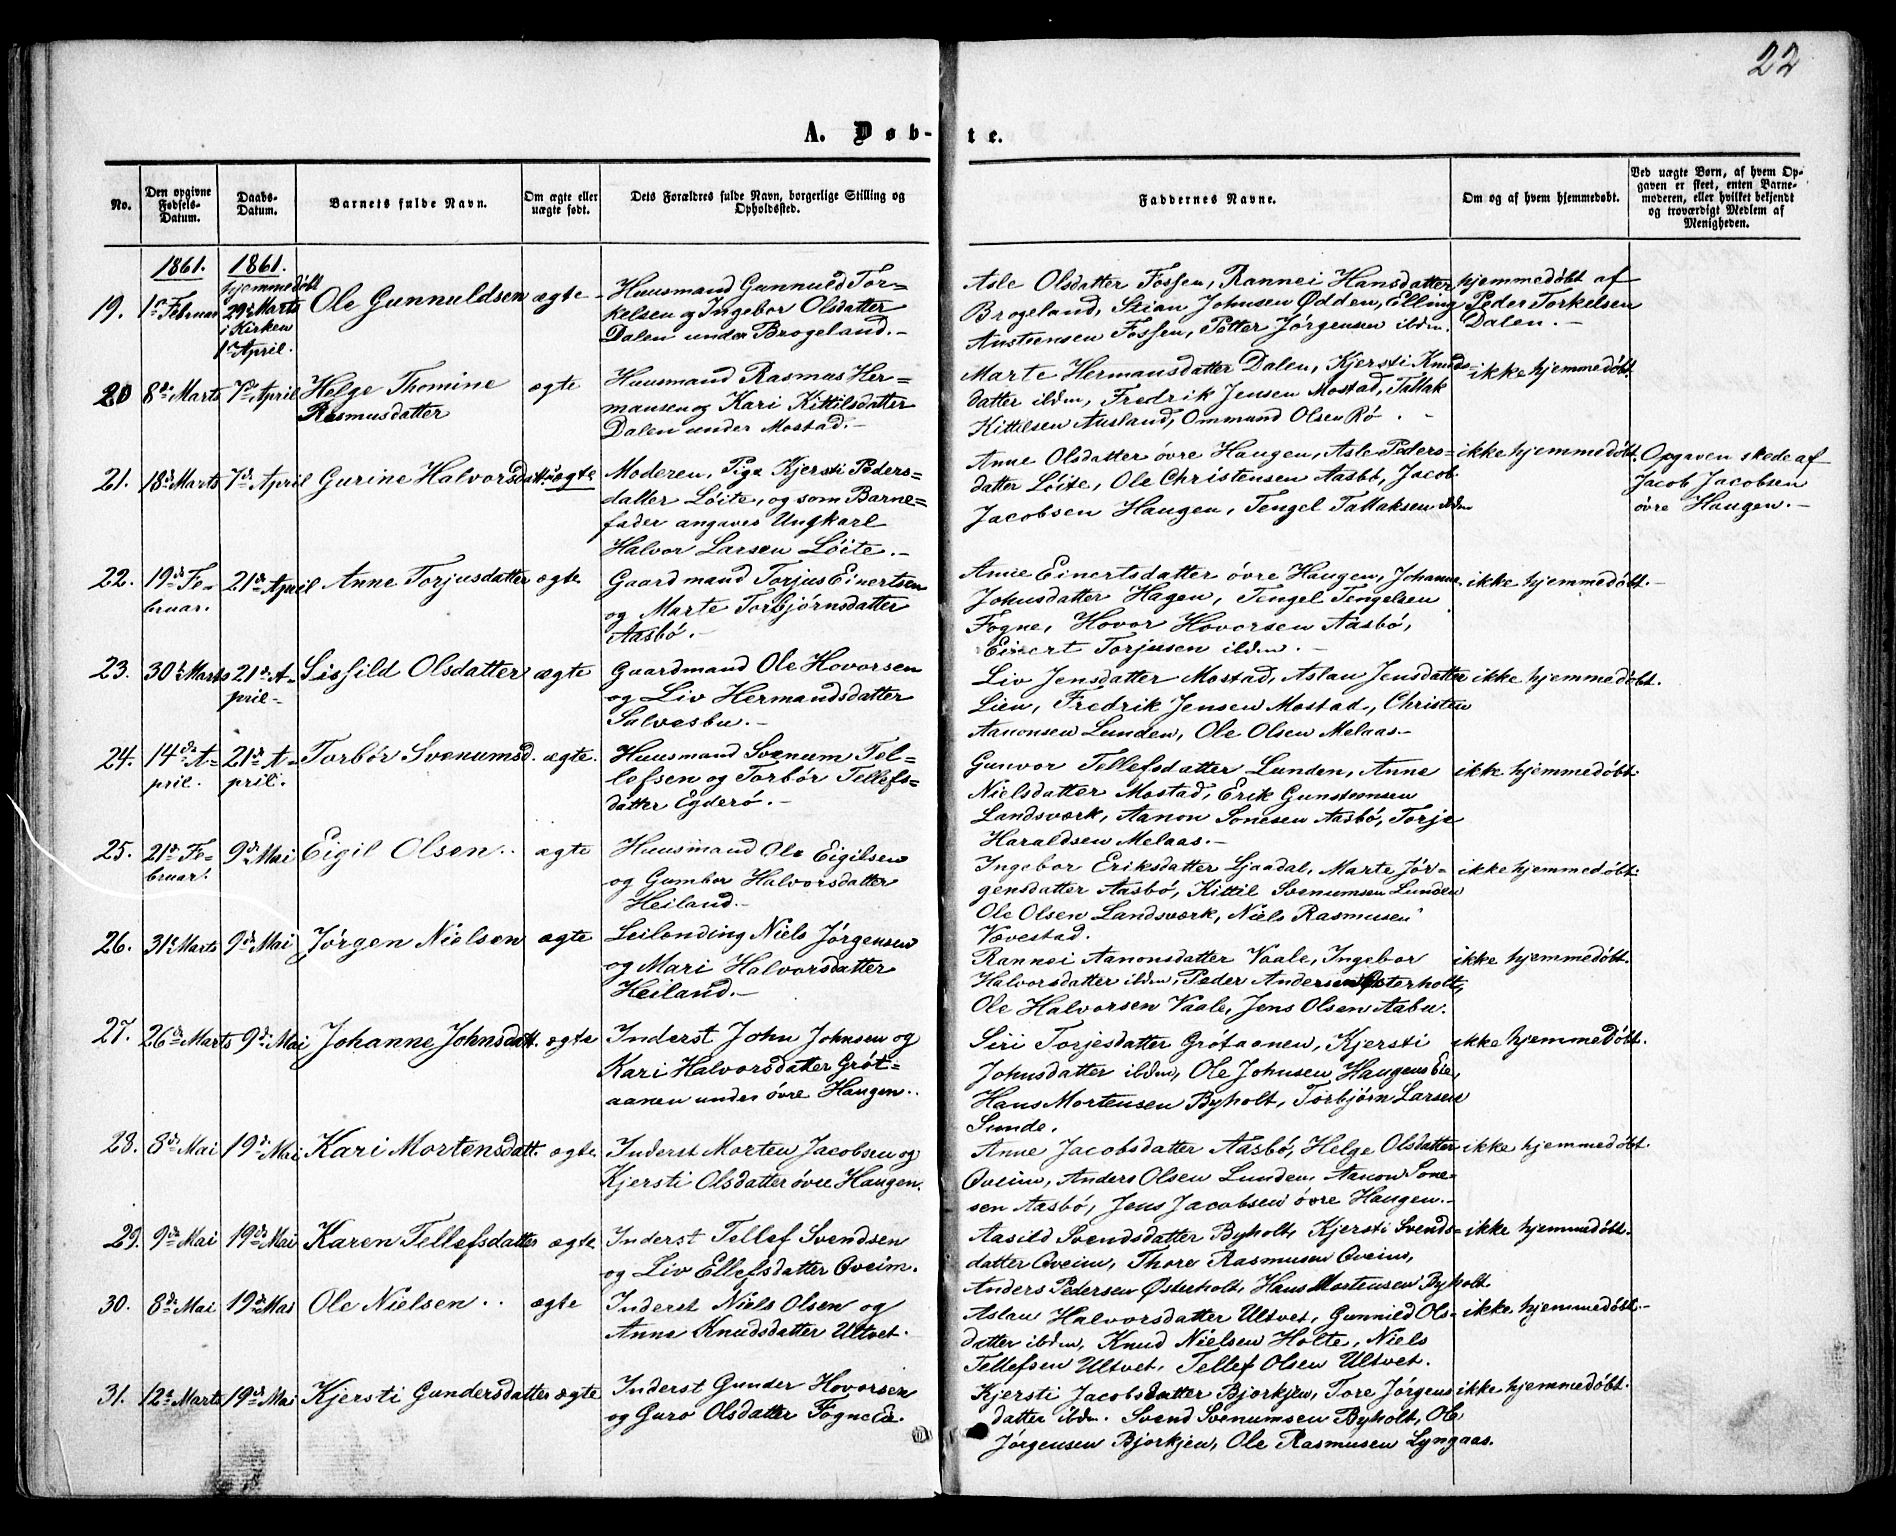 22
A. Døbte.
No.
Den opgivne Fødsels-Datum.
Daabs-Datum.
Barnets fulde Navn.
Om ægte eller uægte født.
Dets Forældres fulde Navn, borgerlige Stilling og Opholdssted.
Faddernes Navne.
Om og af hvem hjemmedøbt.
Ved uægte Børn, af hvem Opgaven er skeet, enten Barnemoderen, eller hvilket bekjendt og troværdigt Medlem af Menigheden.
1861. 1861.
19. 1ste Februar
hjemmedøbt
29de Marts
i Kirken
1ste April.
Ole Gunnuldsen ægte
Huusmand Gunnuld Tor-
kelsen og Ingebor Olsdatter
Dalen under Brogeland.-
Asle Olsdatter Fossen, Rannei Hansdatter
Brogeland, Stian Johnsen Ødden, Elling
Austensen Fossen, Petter Jørgensen ibdm.
hjemmedøbt af
Peder Torkelsen
Dalen.-
20 8de Marts 7de April Helge Thomine
Rasmusdatter
ægte
Huusmand Rasmus Her-
mansen og Kari Kittilsdatter
Dalen under Mostad.-
Marte Hermansdatter Dalen, Kjersti Knuds-
datter ibdm, Fredrik Jensen Mostad, Tallak
Kittilsen Ausland, Ommund Olsen Rø.-
ikke hjemmedøbt.
21. 18de Marts 7de April Gurine Halvorsdatt. uægte
Moderen, Pige Kjersti Peders-
datter Løite, og som Barne-
fader angaves Ungkarl
Halvor Larsen Løite.-
Anne Olsdatter øvre Haugen, Asle Peders-
datter Løite, Ole Christensen Aasbø, Jacob
Jacobsen Haugen, Tengel Tallaksen ibdm
ikke hjemmedøbt.
Opgaven skede af
Jacob Jacobsen
øvre Haugen.-
22. 19de Fe-
bruar.
21de April Anne Torjusdatter ægte
Gaardmand Torjus Einertsen
og Marte Torbjørnsdatter
Aasbø.-
Anne Einertsdatter øvre Haugen, Johanne
Johnsdatter Hagen, Tengel Tengelsen
Fogne, Hovor Hovorsen Aasbø,
Einert Torjusen ibdm.-
ikke hjemmedøbt.-
23. 30de Marts 21de A-
pril-
Sissild Olsdatter ægte
Gaardmand Ole Hovorsen
og Liv Hermandsdatter
Salvesbu.-
Liv Jensdatter Mostad, Aslau Jensdatter
Lien, Fredrik Jensen Mostad, Christen
Aanonsen Lunden, Ole Olsen Melaas.-
ikke hjemmedøbt.
24. 14de A-
pril.
21de A-
pril.
Torbør Svenumsd. ægte.
Huusmand Svenum Tel-
lefsen og Torbør Tellefs-
datter Egderø.-
Gunvor Tellefsdatter Lunden, Anne
Nielsdatter Mostad, Erik Gunstensen
Landsværk, Aanon Sonesen Aasbø, Torje
Haraldsen Melaas.-
ikke hjemmedøbt.
25. 21de Fe-
bruar.
9de Mai Eigil Olsen.. ægte
Huusmand Ole Eigilsen
og Gumbor Halvorsdatter
Heiland.-
Ingebor Eriksdatter Ljaadal, Marte Jør-
gensdatter Aasbø, Kittil Svenumsen Lunden
Ole Olsen Landsværk, Niels Rasmusen
Vævestad.
ikke hjemmedøbt.
26. 31te Marts 9de Mai Jørgen Nielsen ægte
Leilending Niels Jørgensen
og Mari Halvorsdatter
Heiland.-
Rannei Aanonsdatter Vaale, Ingebor
Halvorsdatter ibdm, Peder Andersen Østerholt,
Ole Halvorsen Vaale, Jens Olsen Aabu.
ikke hjemmedøbt.
27. 26de Marts 9de Mai Johanne Johnsdatt. ægte
Inderst John Johnsen og
Kari Halvorsdatter Grøt-
aanen under øvre Haugen..
Siri Torjesdatter Grøtaanen, Kjersti
Johnsdatter ibdm, Ole Johnsen Haugens Eie,
Hans Mortensen Byholt, Torbjørn Larsen
Sunde.
ikke hjemmedøbt.
28. 8de Mai 19de Mai Kari Mortensdatt. ægte.
Inderst Morten Jacobsen og
Kjersti Olsdatter øvre Haugen.
Anne Jacobsdatter Aasbø, Helge Olsdatter
Qveim, Anders Olsen Lunden, Aanon Sone-
sen Aasbø, Jens Jacobsen øvre Haugen.-
ikke hjemmedøbt.
29. 9de Mai 19de Mai Karen Tellefsdatter ægte
Inderst Tellef Svendsen
og Liv Ellefsdatter Qveim.
Aasild Svendsdatter Byholt, Kjersti Svends-
datter Qveim, Thore Rasmusen Qveim,
Anders Pedersen Østerholt, Hans Mortensen Byholt.
ikke hjemmedøbt.
30. 8de Mai 19de Mai Ole Nielsen.. ægte
Inderst Niels Olsen og
Anne Knudsdatter Ultvet.
Aslau Halvorsdatter Ultvet, Gunnild Ols-
datter ibdm, Knud Nielsen Holte, Niels
Tellefsen Ultvet, Tellef Olsen Ultvet.
ikke hjemmedøbt.-
31. 12te Marts 19de Mai Kjersti Gundersdatter ægte
Inderst Gunder Hovorsen
og Guro Olsdatter Fogne Ei.
Kjersti Jacobsdatter Bjorkjen, Tore Jørgens
datter ibdm. Svend Svenumsen Byholt, Ole
Jørgensen Bjorkjen, Ole Rasmusen Lyngaas.
ikke hjemmedøbt.